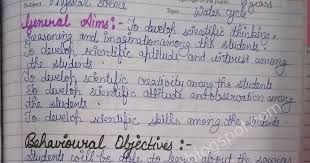 Subject Physical Science years
Topic Water cycle
General Aims:- To develop scientific thinking,
reasoning and imagination among the students
To develop scientific aptitude and intrest among
the students
To develop scientific creativity among the students
To develop scientific attitude and observation among
the students.
To develop scientific skills among the students
Behavioural Objectives :-
Students will be able to learn about the various